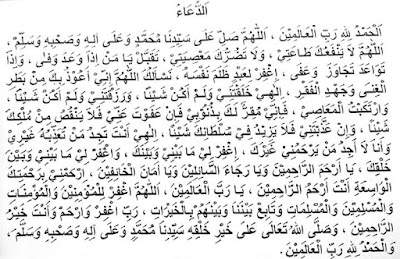 اَلدُّعَاءُ
اَلْحَمْدُ لِلّٰهِ رَبِّ الْعَالَمِيْنَ ، اَللّٰهُمَّ صَلِّ عَلٰى سَيِّدِنَا مُحَمَّدٍ وَعَلٰى اٰلِهِ وَصَحْبِهِ وَسَلِّمْ ،
اَللّٰهُمَّ لَا تَنْفَعُكَ طَاعَتِيْ ، وَلَا تَضُرُّكَ مَعْصِيَتِيْ ، تَقَبَّلْ يَا مَنْ إِذَا وَعَدَ وَفٰى ، وَإِذَا
تَوَاعَدَ تَجَاوَزَ وَعَفٰى ، اِغْفِرْ لِعَبْدٍ ظَلَمَ نَفْسَهُ ، نَسْأَلُكَ اَللّٰهُمَّ إِنِّيْ أَعُوْذُ بِكَ مِنْ بَطَرِ
الْغِنٰى وَجَهْدِ الْفَقْرِ ، إِلٰهِيْ خَلَقْتَنِيْ وَلَمْ أَكُنْ شَيْئًا ، وَرَزَقْتَنِيْ وَلَمْ أَكُنْ شَيْئًا ،
وَارْتَكَبْتُ الْمَعَاصِيْ ، فَإِنِّيْ مُقِرٌّ لَكَ بِذُنُوْبِيْ فَإِنْ عَفَوْتَ عَنِّيْ فَلَا يَنْقُصُ مِنْ مُلْكِكَ
شَيْئًا ، وَإِنْ عَذَّبْتَنِيْ فَلَا يَزِيْدُ فِيْ سُلْطَانِكَ شَيْئًا ، إِلٰهِيْ أَنْتَ تَجِدُ مَنْ تُعَذِّبُهُ غَيْرِيْ
وَأَنَا لَا أَجِدُ مَنْ يَرْحَمُنِيْ غَيْرَكَ ، اِغْفِرْ لِيْ مَا بَيْنِيْ وَبَيْنَكَ ، وَاغْفِرْ لِيْ مَا بَيْنِيْ وَبَيْنَ
خَلْقِكَ ، يَا أَرْحَمَ الرَّاحِمِيْنَ وَيَا رَجَاءَ السَّائِلِيْنَ وَيَا أَمَانَ الْخَائِفِيْنَ ، إِرْحَمْنِيْ بِرَحْمَتِكَ
الْوَاسِعَةِ أَنْتَ أَرْحَمُ الرَّاحِمِيْنَ ، يَا رَبَّ الْعَالَمِيْنَ ، اَللّٰهُمَّ اغْفِرْ لِلْمُؤْمِنِيْنَ وَالْمُؤْمِنَاتِ
وَالْمُسْلِمِيْنَ وَالْمُسْلِمَاتِ وَتَابِعْ بَيْنَنَا وَبَيْنَهُمْ بِالْخَيْرَاتِ ، رَبِّ اغْفِرْ وَارْحَمْ وَأَنْتَ خَيْرُ
الرَّاحِمِيْنَ ، وَصَلَّى اللهُ تَعَالٰى عَلٰى خَيْرِ خَلْقِهِ سَيِّدِنَا مُحَمَّدٍ وَعَلٰى اٰلِهِ وَصَحْبِهِ وَسَلَّمَ ،
وَالْحَمْدُ لِلّٰهِ رَبِّ الْعَالَمِيْنَ.